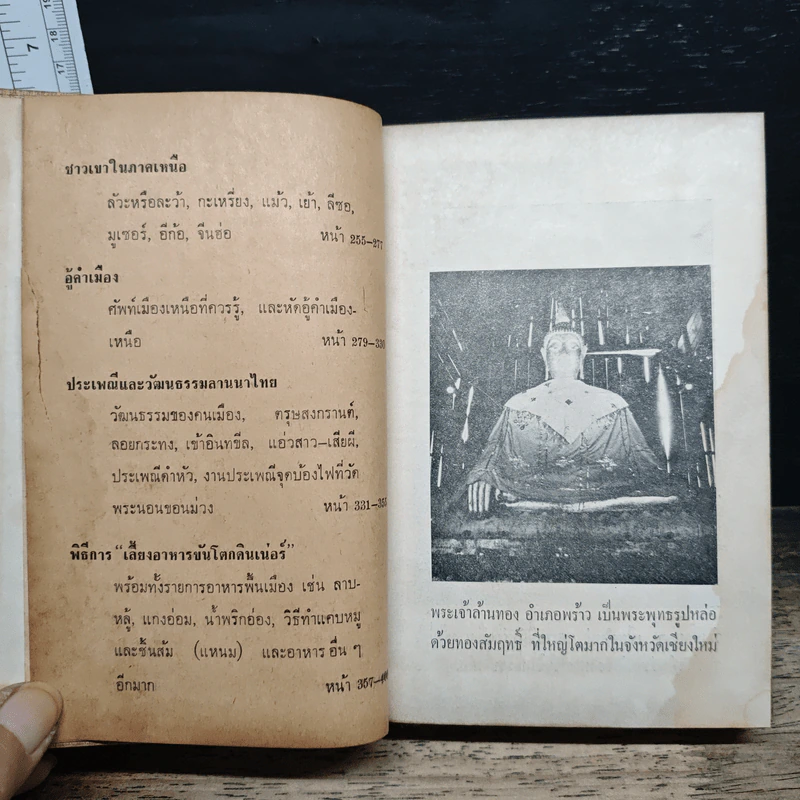 ชาวเขาในภาคเหนือ
ลัวะหรือละว้า, กะเหรี่ยง, แม้ว, เย้า, ลีซอ,
มูเซอร์, อีก้อ, จีนฮ่อ หน้า 255–277
อู้คำเมือง
ศัพท์เมืองเหนือที่ควรรู้, และหัดอู้คำเมือง-
เหนือ หน้า 279–330
ประเพณีและวัฒนธรรมลานนาไทย
วัฒนธรรมของคนเมือง, ตรุษสงกรานต์,
ลอยกระทง, เข้าอินทขีล, แอ่วสาว–เสียผี,
ประเพณีดำหัว, งานประเพณีจุดบ้องไฟที่วัด
พระนอนขอนม่วง หน้า 331–35
พิธีการ “เลี้ยงอาหารขันโตกดินเน่อร์”
พร้อมทั้งรายการอาหารพื้นเมือง เช่น ลาบ-
หลู้, แกงอ่อม, น้ำพริกอ่อง, วิธีทำแคบหมู
และชิ้นส้ม (แหนม) และอาหารอื่น ๆ
อีกมาก หน้า 357–400
พระเจ้าล้านทอง อำเภอพร้าว เป็นพระพุทธรูปหล่อ
ด้วยทองสัมฤทธิ์ ที่ใหญ่โตมากในจังหวัดเชียงใหม่
7
19
18
17